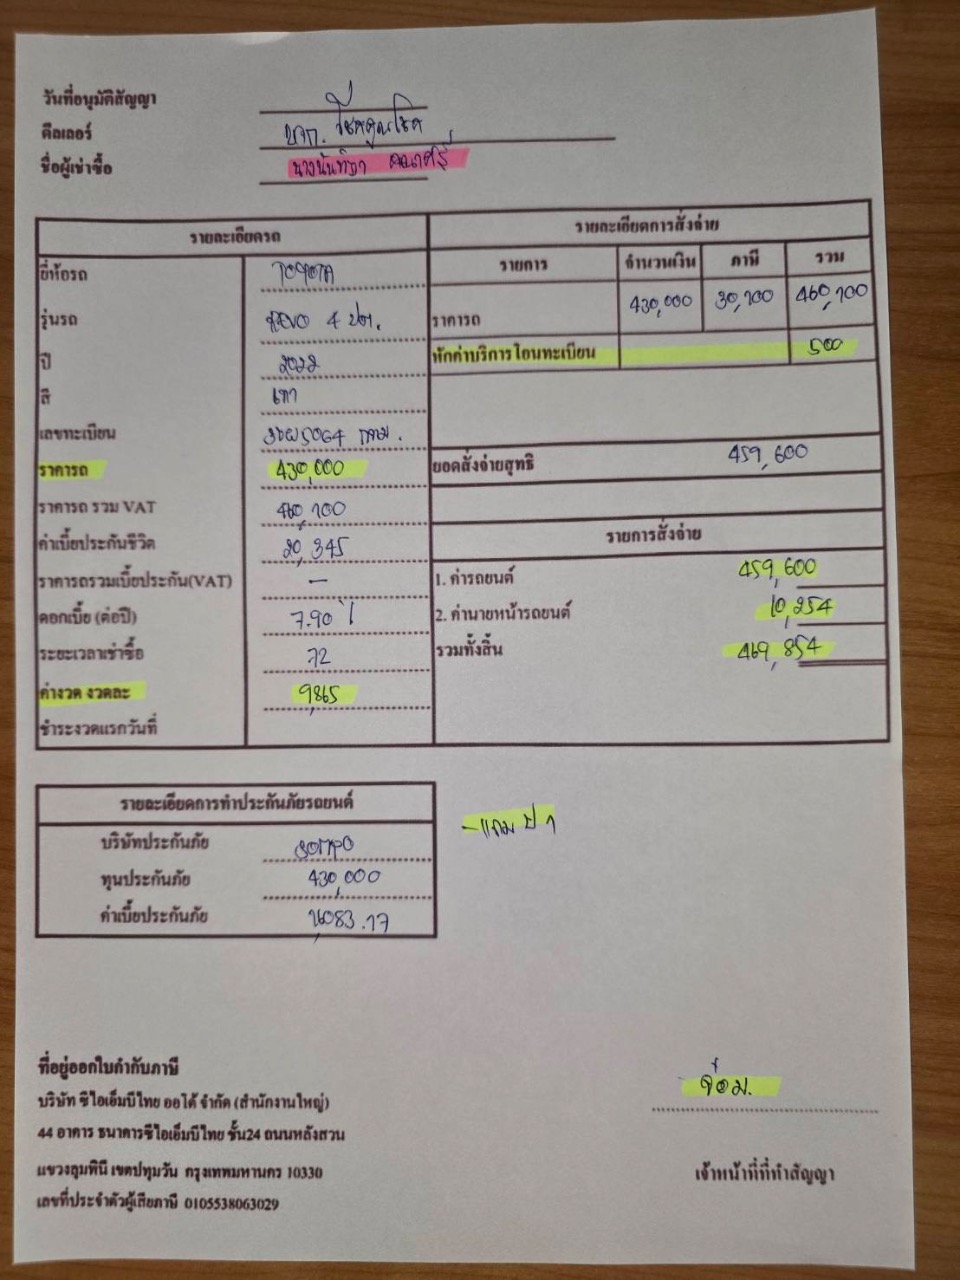 วันที่อนุมัติสัญญา
ดีลเลอร์ บจก.
ชื่อผู้เช่าซื้อ
รายละเอียดรถ
ยี่ห้อรถ TOYOTA
รุ่นรถ REVO 4 ปต.
ปี 2022
สี เทา
เลขทะเบียน
ราคารถ 430,000
ราคารถ รวม VAT 460,100
ค่าเบี้ยประกันชีวิต 20,345
ราคารถรวมเบี้ยประกัน(VAT) -
ดอกเบี้ย (ต่อปี) 7.90 %
ระยะเวลาเช่าซื้อ 72
ค่างวด งวดละ 9,865
ชำระงวดแรกวันที่
รายละเอียดการสั่งจ่าย
รายการ จำนวนเงิน ภาษี รวม
ราคารถ 430,000 30,100 460,100
หักค่าบริการโอนทะเบียน 500
ยอดสั่งจ่ายสุทธิ 459,600
รายการสั่งจ่าย
1. ค่ารถยนต์ 459,600
2. ค่านายหน้ารถยนต์ 10,254
รวมทั้งสิ้น 469,854
รายละเอียดการทำประกันภัยรถยนต์
บริษัทประกันภัย SOMPO
ทุนประกันภัย 430,000
ค่าเบี้ยประกันภัย
- แถม ป 1
ที่อยู่ออกใบกำกับภาษี
บริษัท ซีไอเอ็มบีไทย ออโต้ จำกัด (สำนักงานใหญ่)
44 อาคาร ธนาคารซีไอเอ็มบีไทย ชั้น24 ถนนหลังสวน
แขวงลุมพินี เขตปทุมวัน กรุงเทพมหานคร 10330
เลขที่ประจำตัวผู้เสียภาษี 0105538063029
จ๋อม.
เจ้าหน้าที่ที่ทำสัญญา